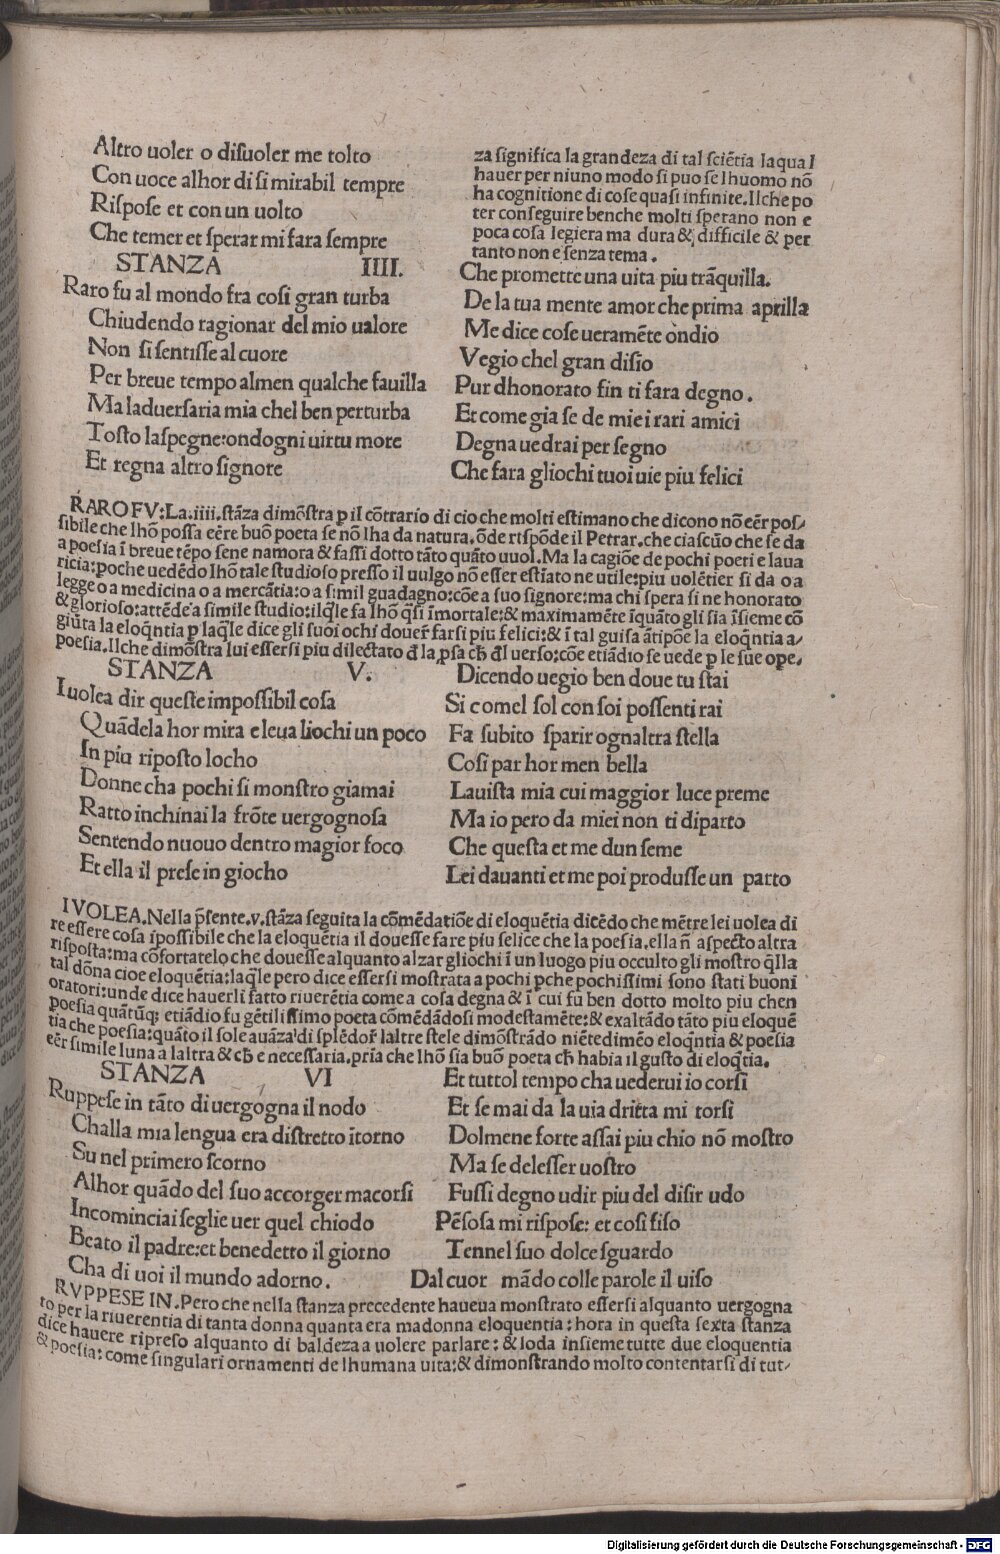 Altro uoler o diſuoler me tolto
Con uoce alhor di ſi mirabil tempre
Riſpoſe et con un uolto
Che temer et ſperar mi fara ſempre
za ſignifica la grandeza di tal ſciẽtia laqual
hauer per niuno modo ſi puo ſe lhuomo nõ
ha cognitione di coſe quaſi infinite. Ilche po
ter conſeguire benche molti ſperano non e
poca coſa legiera ma dura & difficile & per
tanto non e ſenza tema.
STANZA IIII.
Raro fu al mondo fra coſi gran turba
Chiudendo ragionar del mio ualore
Non ſi ſentiſſe al cuore
Per breue tempo almen qualche fauilla
Ma laduerſaria mia chel ben perturba
Toſto laſpegne: ondogni uirtu more
Et regna altro ſignore
Che promette una uita piu trãquilla.
De la tua mente amor che prima aprilla
Me dice coſe ueramẽte ondio
Vegio chel gran diſio
Pur dhonorato fin ti fara degno.
Et come gia ſe de miei rari amici
Degna uedrai per ſegno
Che fara gliochi tuoi uie piu felici
RARO FV: La .iiii. ſtãza dimõſtra p il cõtrario di cio che molti eſtimano che dicono nõ eẽr poſ-
ſibile che lhõ poſſa eẽre buõ poeta ſe nõ lha da natura. õde riſpõde il Petrar. che ciaſcũo che ſe da
a poeſia ĩ breue tẽpo ſene namora & faſſi dotto tãto quãto uuol. Ma la cagiõe de pochi poeti e laua
ricia: poche uedẽdo lhõ tale ſtudioſo preſſo il uulgo nõ eſſer eſtĩato ne utile: piu uolẽtier ſi da o a
legge o a medicina o a mercãtia: o a ſimil guadagno: cõe a ſuo ſignore: ma chi ſpera ſi ne honorato
& glorioſo: attẽde a ſimile ſtudio: ilq̃le fa lhõ q̃ſi ĩmortale: & maximamẽte ĩquãto gli ſia ĩſieme cõ
giũta la eloq̃ntia p laq̃le dice gli ſuoi ochi douer̃ farſi piu felici: & ĩ tal guiſa ãtipõe la eloq̃ntia a-
poeſia. Ilche dimõſtra lui eſſerſi piu dilectato d̃ la ꝓſa ch̃ d̃l uerſo: cõe etiãdio ſe uede p le ſue ope.
STANZA V.
I uolea dir queſte impoſſibil coſa
Quãdela hor mira e leua liochi un poco
In piu ripoſto locho
Donne cha pochi ſi monſtro giamai
Ratto inchinai la frõte uergognoſa
Sentendo nuouo dentro magior foco
Et ella il preſe in giocho
Dicendo uegio ben doue tu ſtai
Si comel ſol con ſoi poſſenti rai
Fa ſubito ſparir ognaltra ſtella
Coſi par hor men bella
La uiſta mia cui maggior luce preme
Ma io pero da miei non ti diparto
Che queſta et me dun ſeme
Lei dauanti et me poi produſſe un parto
I VOLEA. Nella p̃ſente .v. ſtãza ſeguita la cõmẽdatiõe di eloquẽtia dicẽdo che mẽtre lei uolea di
re eſſere coſa ĩpoſſibile che la eloquẽtia il doueſſe fare piu felice che la poeſia. ella ñ aſpecto altra
riſpoſta: ma cõfortatelo che doueſſe alquanto alzar gliochi ĩ un luogo piu occulto gli moſtro q̃lla
tal dõna cioe eloquẽtia: laq̃le pero dice eſſerſi moſtrata a pochi pche pochiſſimi ſono ſtati buoni
oratori: unde dice hauerli fatto riuerẽtia come a coſa degna & ĩ cui fu ben dotto molto piu chen
poeſia quãtũq; etiãdio fu gẽtiliſſimo poeta cõmẽdãdoſi modeſtamẽte: & exaltãdo tãto piu eloquẽ
tia che poeſia: quãto il ſole auãza di ſplẽdor̃ laltre ſtele dimõſtrãdo niẽtedimẽo eloq̃ntia & poeſia
eẽr ſimile luna a laltra & ch̃ e neceſſaria. pria che lhõ ſia buõ poeta ch̃ habia il guſto di eloq̃tia.
STANZA VI
Ruppeſe in tãto di uergogna il nodo
Challa mia lengua era diſtretto ĩtorno
Su nel primero ſcorno
Alhor quãdo del ſuo accorger macorſi
Incominciai ſeglie uer quel chiodo
Beato il padre: et benedetto il giorno
Cha di uoi il mundo adorno.
Et tuttol tempo cha uederui io corſi
Et ſe mai da la uia dritta mi torſi
Dolmene forte aſſai piu chio nõ moſtro
Ma ſe deleſſer uoſtro
Fuſſi degno udir piu del diſir udo
Pẽſoſa mi riſpoſe: et coſi fiſo
Tennel ſuo dolce ſguardo
Dal cuor mãdo colle parole il uiſo
RVPPESE IN. Pero che nella ſtanza precedente haueua monſtrato eſſerſi alquanto uergogna
to per la riuerentia di tanta donna quanta era madonna eloquentia: hora in queſta ſexta ſtanza
dice hauere ripreſo alquanto di baldẽza a uolere parlare: & loda inſieme tutte due eloquentia
& poeſia: come ſingulari ornamenti de lhumana uita: & dimonſtrando molto contentarſi di tut-
Digitalisierung gefördert durch die Deutsche Forschungsgemeinschaft - DFG